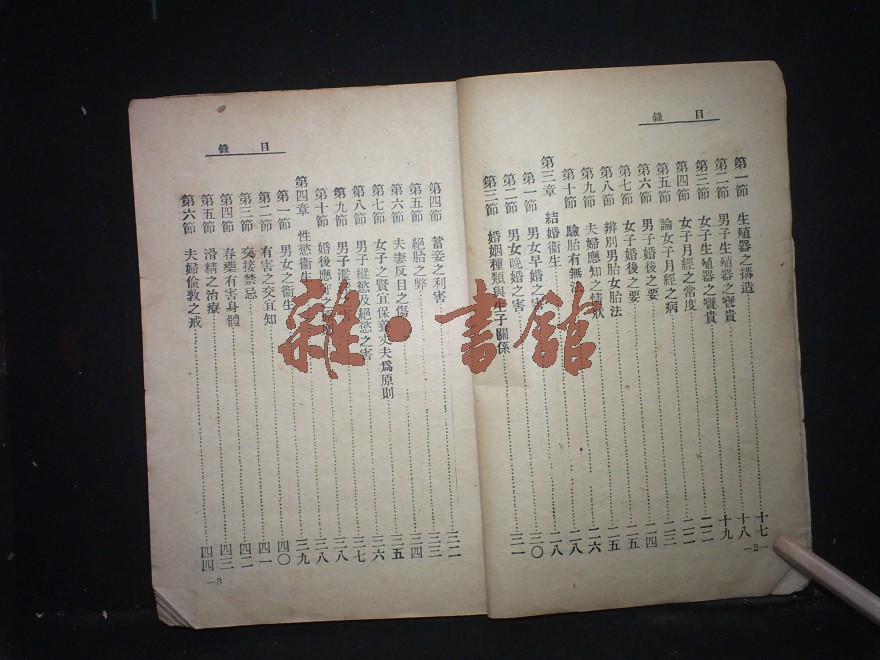 目錄
第一節 生殖器之搆造 十七
第二節 男子生殖器之寶貴 十八
第三節 女子生殖器之寶貴 十九
第四節 女子月經之常度 二二
第五節 論女子月經之病 二三
第六節 男子婚後之要 二四
第七節 女子婚後之要 二五
第八節 辨別男胎女胎法 二五
第九節 夫婦應知之情狀 二六
第十節 驗胎有無法 二八
第三章 結婚衞生 二八
第一節 男女早婚之害 三〇
第二節 男女晚婚之害
第三節 婚姻種類與生子關係 三一
—2—
目錄
第四節 蓄妾之利害 三二
第五節 絕胎之弊 三三
第六節 夫妻反目之傷 三四
第七節 女子之賢宜保養丈夫爲原則 三五
第八節 男子縱慾及絕慾之害 三六
第九節 男子濫 三七
第十節 婚後應 三八
第四章 性慾衞生 三八
第一節 男女之衞生 三九
第二節 有害之交宜知 四〇
第三節 交接禁忌 四一
第四節 春藥有害身體 四二
第五節 滑精之治療 四三
第六節 夫婦倫敦之戒 四四
—3
雜·書館